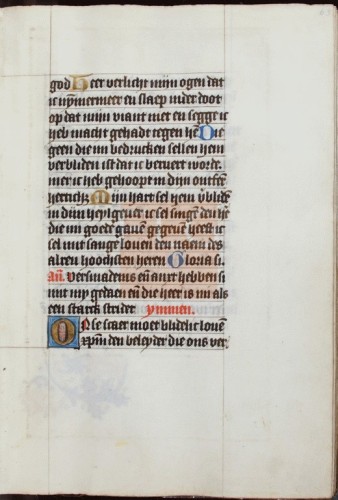 god Heer verlicht mijn ogen dat
ic nymmermeer en slaep inder doot
op dat mijn viant niet en segge ic
heb macht gehadt tegen hē Die
geen die mi bedrucken sellen hem
verbliden ist dat ic beruert worde
mer ic heb gehoopt in dijn ontfer
herticht Mijn hart sel hem ūblidē
in dijn heylgeuer ic sel singē den hē
die mi goede gauē gegeuē heeft ic
sel mit sange louen den naem des
alren hoochsten heren Gloria si.
añ. Versmadenis eñ anxt hebben si
mit my gedaen eñ die heer is mi als
een starck strider ymmen.
Onse scaer moet blidelic louē
xpm̄ den beleyder die ons ver